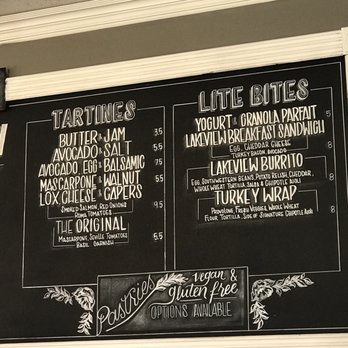 TARTINES
BUTTER & JAM 3.5
AVOCADO & SALT 5.5
AVOCADO, EGG & BALSAMIC 7.5
MASCARPONE & WALNUT 5.5
LOX, CHEESE & CAPERS
SMOKED SALMON, RED ONIONS
ROMA TOMATOES
THE ORIGINAL
MASCARPONE, SEVILLE TOMATOES
BASIL GARNISH 5.5
LITE BITES
YOGURT & GRANOLA PARFAIT 5
LAKEVIEW BREAKFAST SANDWICH
EGG, CHEDDAR CHEESE
TURKEY BACON, AVOCADO
LAKEVIEW BURRITO
EGG, SOUTHWESTERN BEANS, POTATO RELISH, CHEDDAR,
WHOLE WHEAT TORTILLA, SALSA & CHIPOTLE AIOLI 8
TURKEY WRAP
PROVOLONE, FRESH VEGGIES, WHOLE WHEAT
FLOUR TORTILLA, SIDE OF SIGNATURE CHIPOTLE AIOLI 8
Pastries
vegan &
gluten free
OPTIONS AVAILABLE